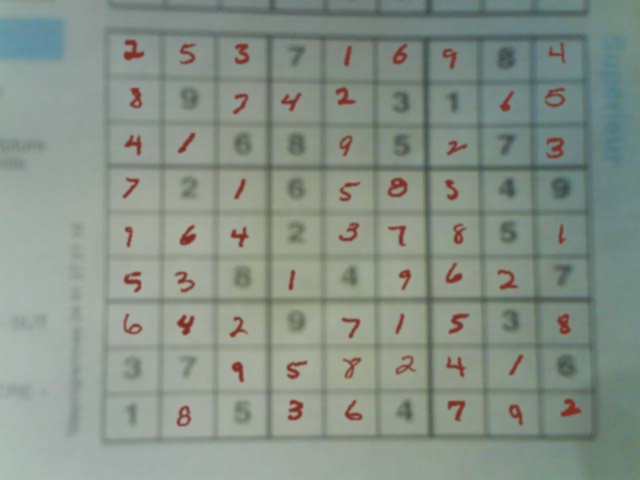 2 5 3 7 1 6 9 8 4
8 9 7 4 2 3 1 6 5
4 1 6 8 9 5 2 7 3
7 2 1 6 5 8 3 4 9
9 6 4 2 3 7 8 5 1
5 3 8 1 4 9 6 2 7
6 4 2 9 7 1 5 3 8
3 7 9 5 8 2 4 1 6
1 8 5 3 6 4 7 9 2
Supérieur